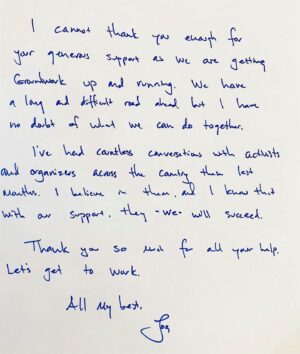 I cannot thank you enough for
your generous support as we are getting
Groundwork up and running. We have
a long and difficult road ahead, but I have
no doubt of what we can do together.
I've had countless conversations with activists
and organizers across the country these last
months. I believe in them, and I know that
with our support, they -we- will succeed.
Thank you so much for all your help.
Let's get to work.
All my best,